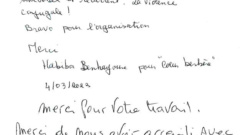 de violence
conjugale !
Bravo pour l'organisation
Merci
Habiba pour
4/03/2022
merci pour votre travail.
Merci de nous avoir accueilli Avec